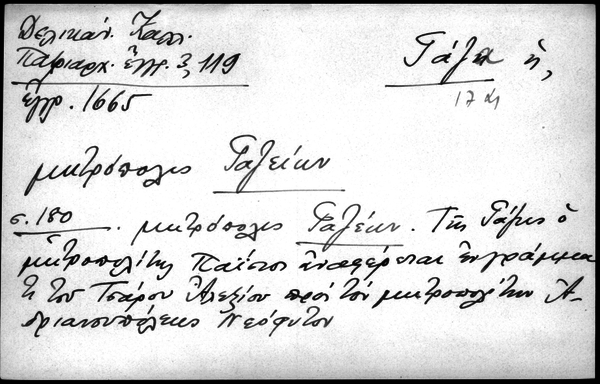 Δελικάν. Καλλ.
Πατριαρχ. ἔγγρ. 3, 119
Γάζα ἡ,
ἔγγρ. 1665
17 αι
μητρόπολις Γαζείων
σ. 180. μητρόπολις Γαζέων. Τῆς Γάζης ὁ
μητροπολίτης Παΐσιος ἀναφέρεται ἐν γράμμα
τι τοῦ Τσάρου Ἀλεξίου πρὸς τὸν μητροπολίτην Ἀ-
δριανουπόλεως Νεόφυτον